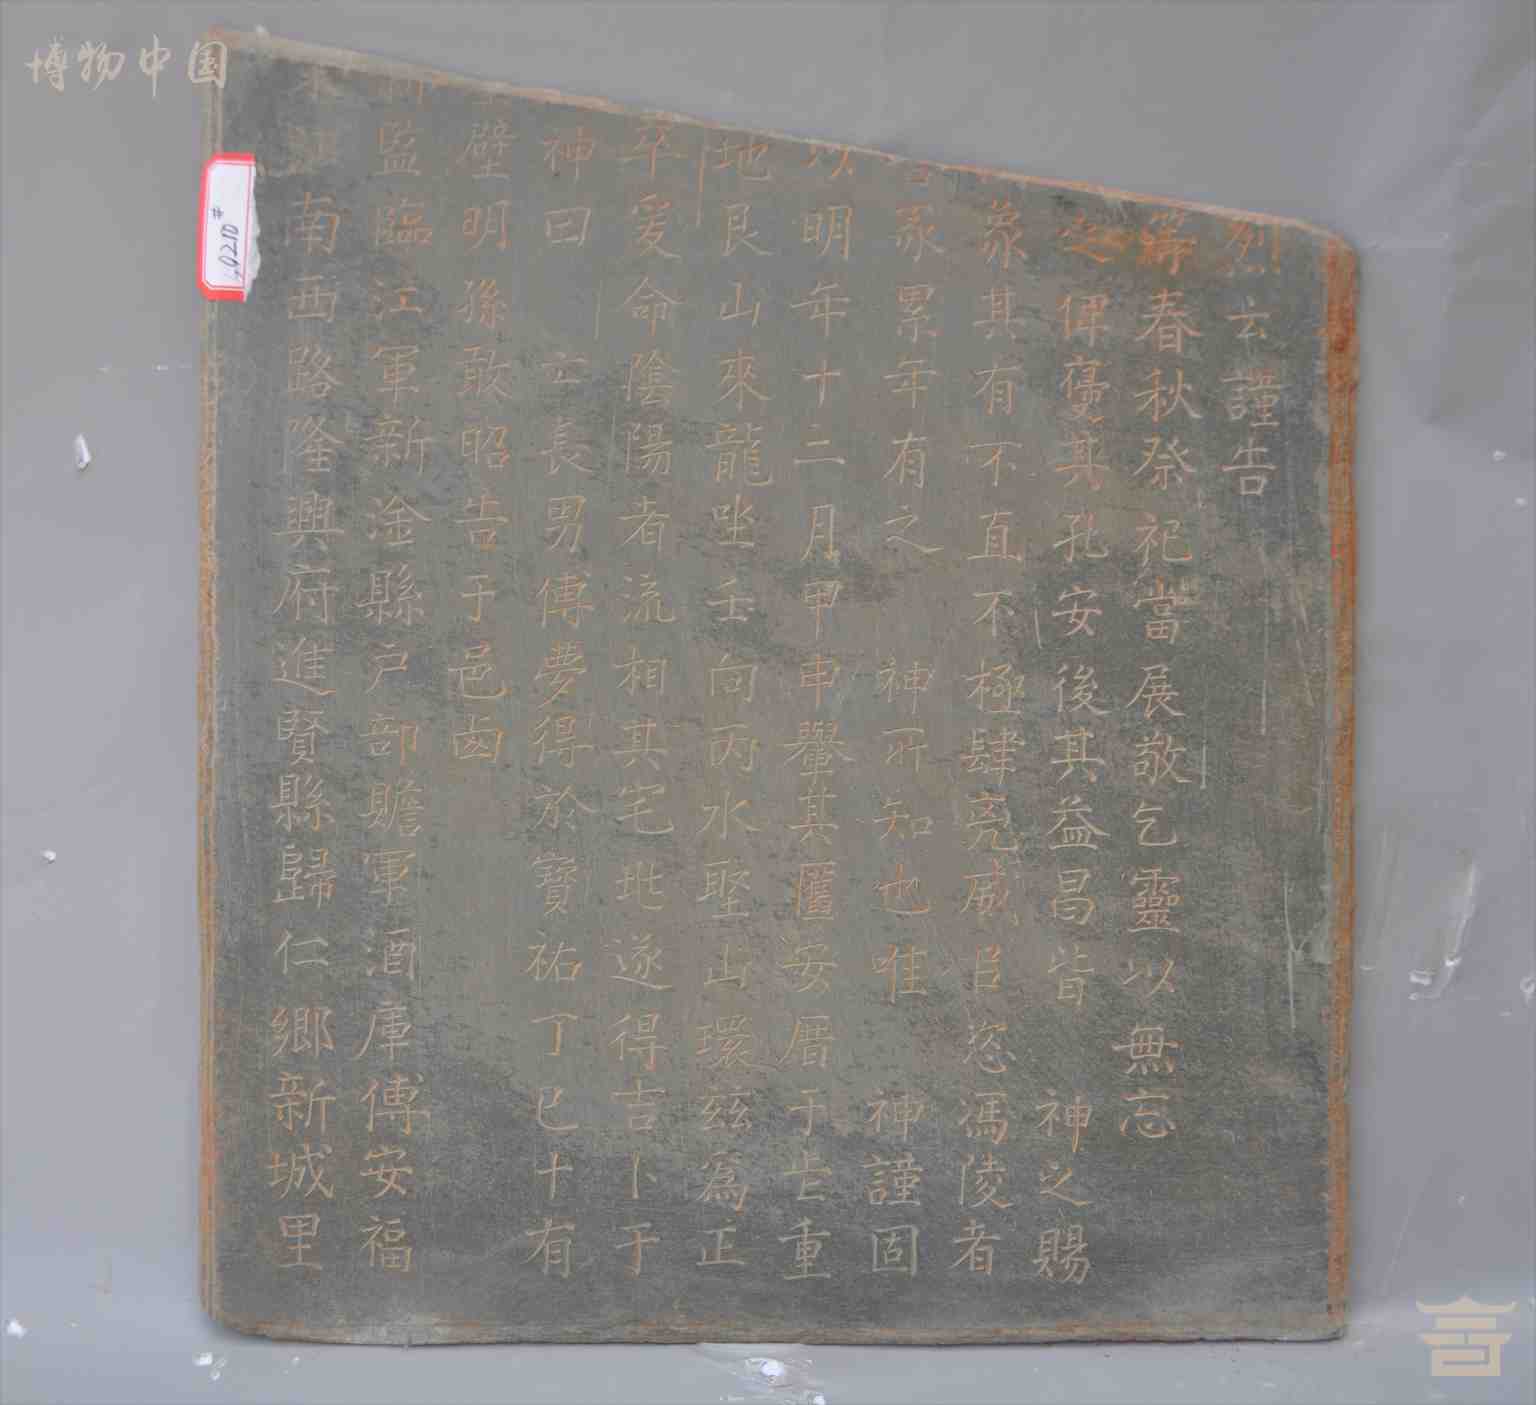 博物中国
南西路隆興府進賢縣歸仁鄉新城里
監臨江軍新淦縣戶部贍軍酒庫傅安福
壁明孫敢昭告于邑
神曰 亡長男傅夢得於寶祐丁巳十有
卒爰命陰陽者流相其宅地遂得吉卜于
地艮山來龍坐壬向丙水山環茲為正
以明年十二月甲申轝其匶安厝于重
豕累年有之 神所知也唯 神謹固
象其有不直不極肆威恣馮陵者
之俾其孔安後其益昌皆 神之賜
春秋祭祀當展敬乞靈以無忘
烈云謹告